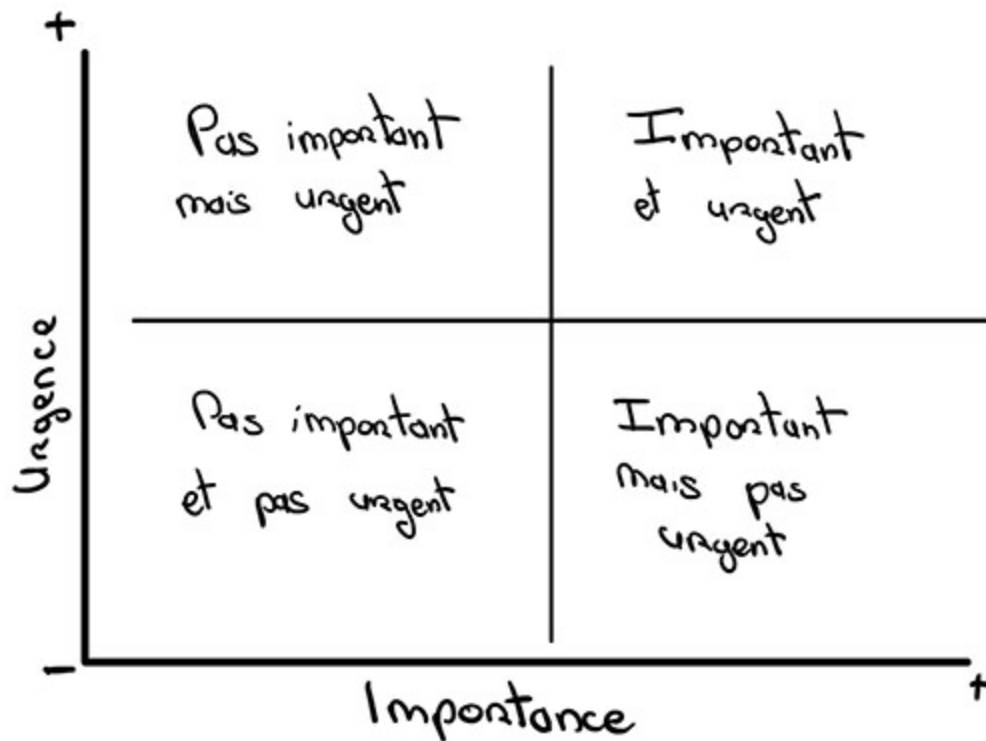 +
Pas important
mais urgent
Important
et urgent
Urgence
Pas important
et pas urgent
Important
mais pas
urgent
-
Importance
+